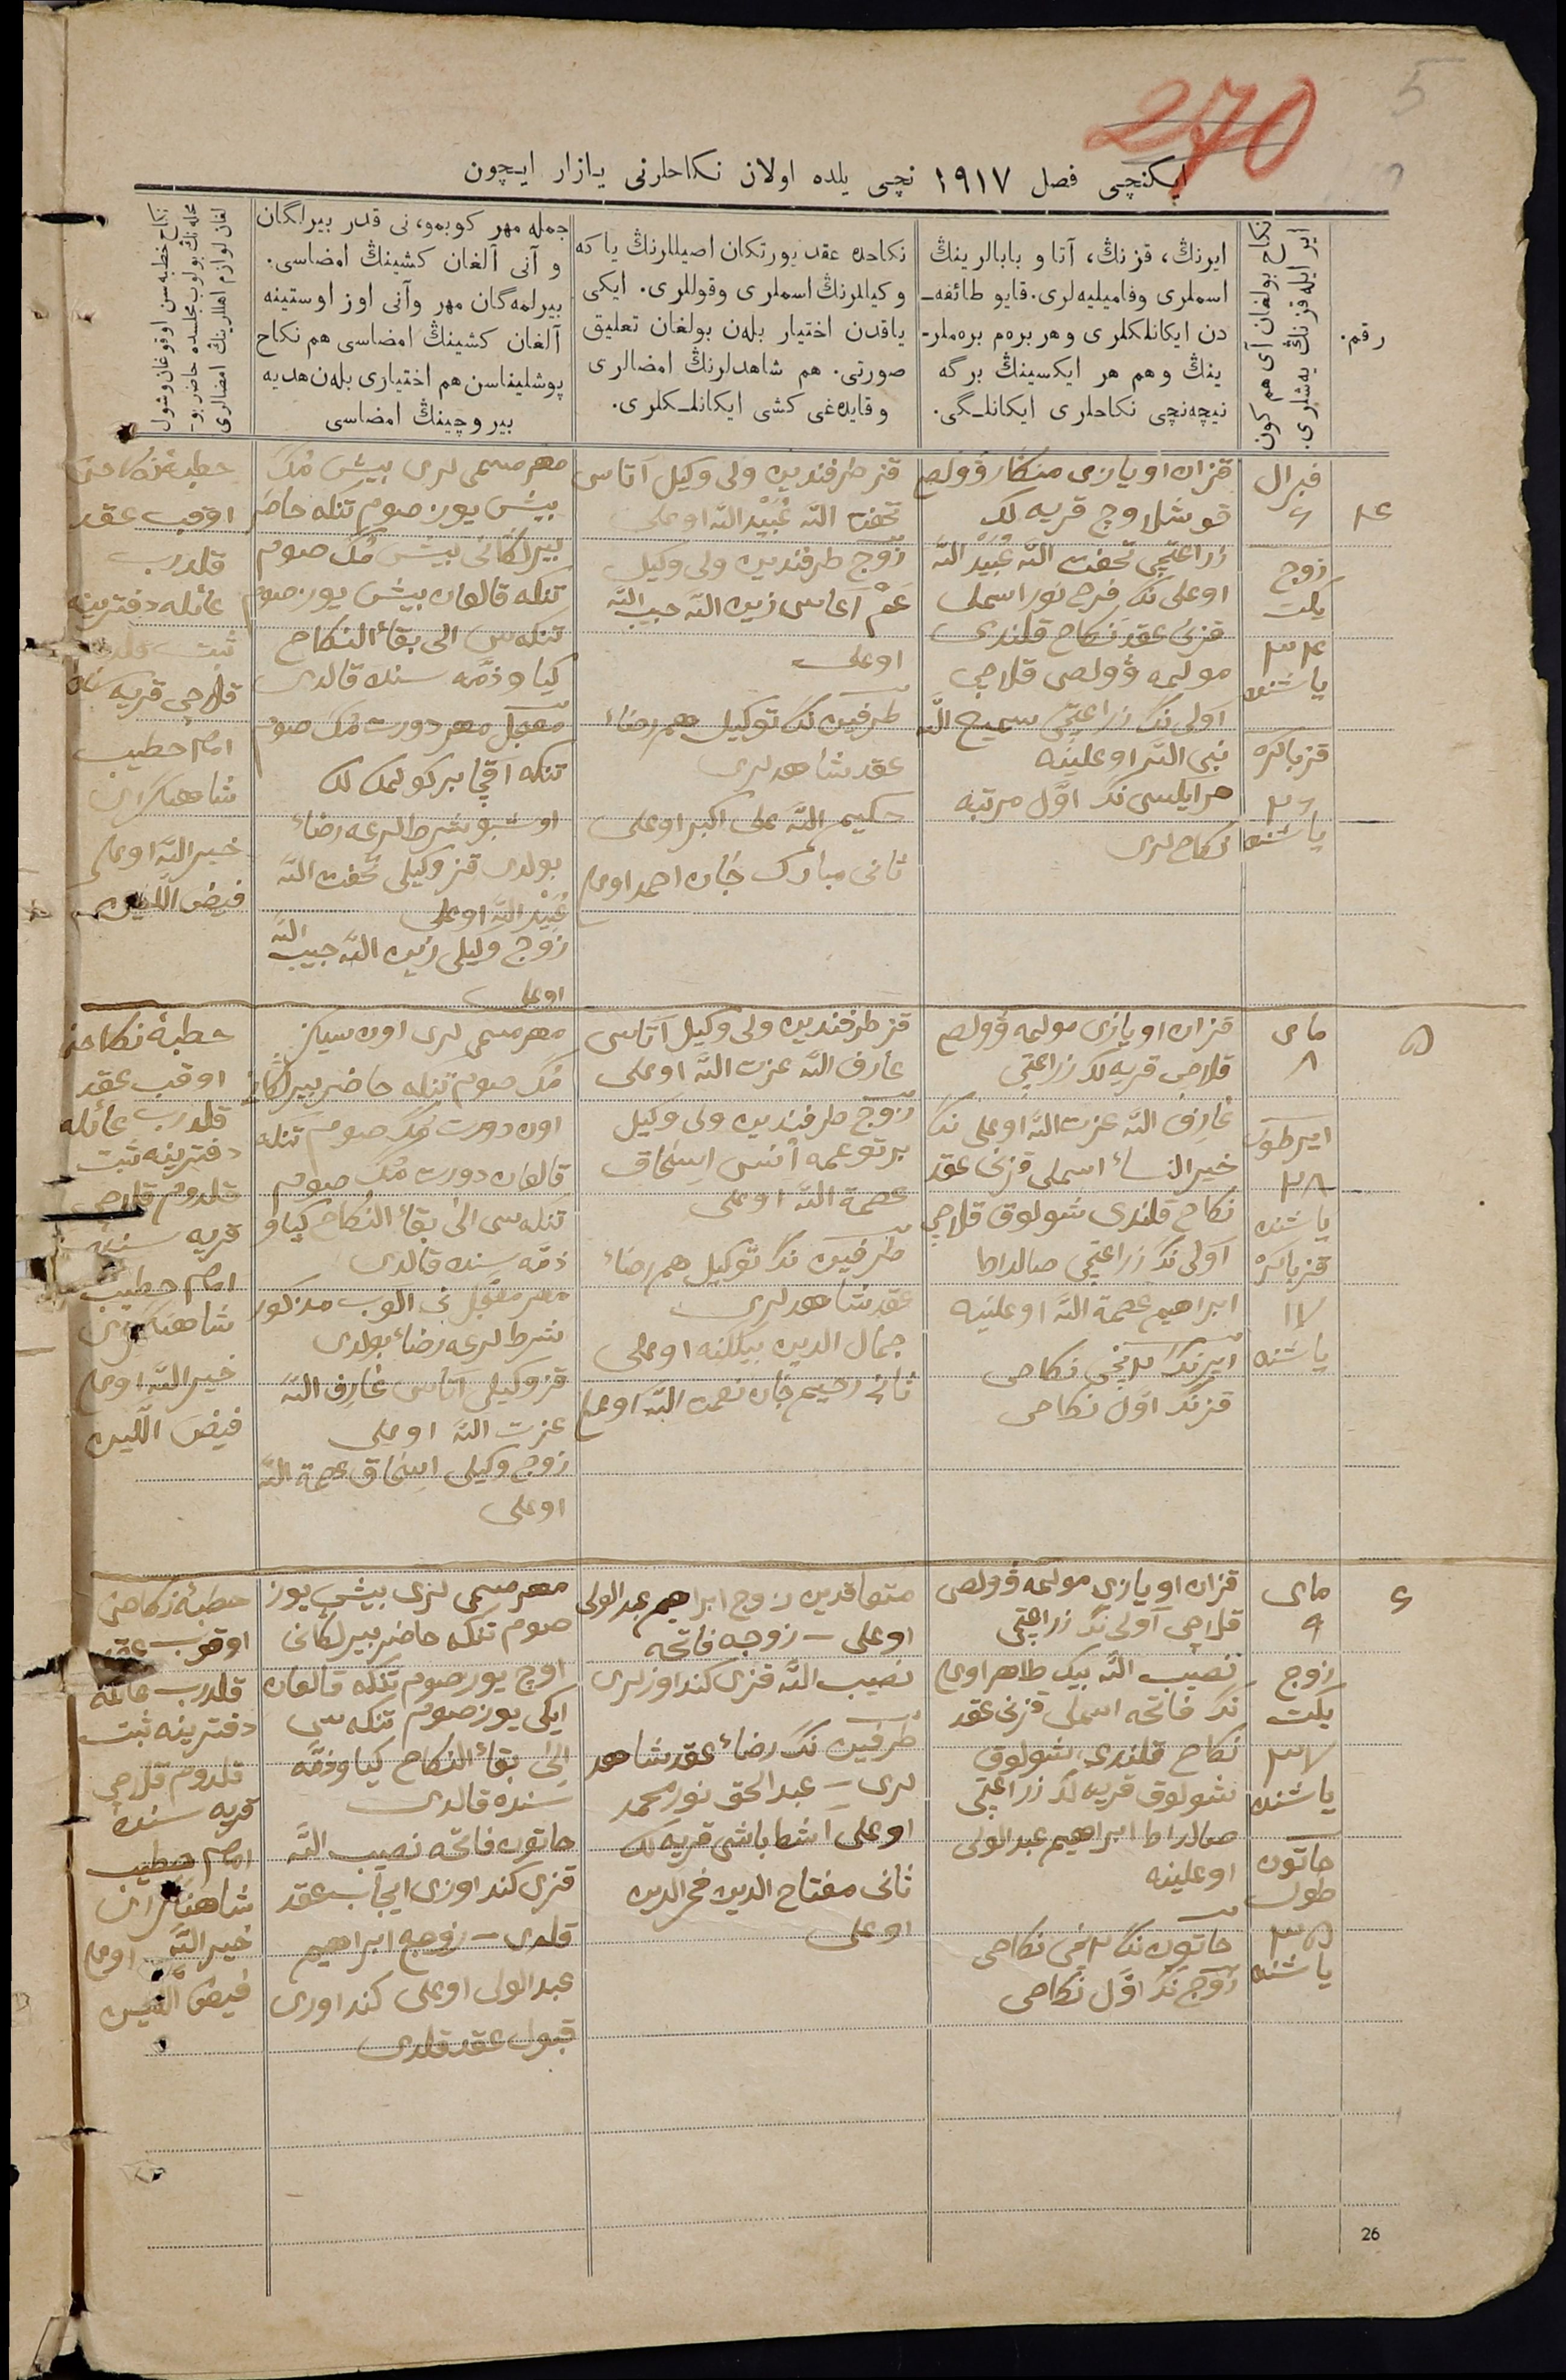 5
270
ایکنچی فصل ۱۹۱۷ نچی یلده اولان نکاحلرنی یازار ایچون
رقم.
نکاح بولغان آی هم کون
ایر ایله قزنڭ یه‌شلری.
ایرنڭ، قزنڭ، آتا و بابالرینڭ
اسملری وفامیلیه‌لری. قایو طائفه‌ـ
دن ایکانلکلری و هر بره‌م بره‌ملرـ
ینڭ و هم هر ایکسینڭ برگه
نیچه‌نچی نکاحلری ایکانلـگی.
نکاحده عقد یورتکان اصیللرنڭ یا که
وکیللرنڭ اسملری وقوللری. ایکی
یاقدن اختیار بله‌ن بولغان تعلیق
صورتی. هم شاهدلرنڭ امضالری
و قایده‌غی کشی ایکانلـکلری.
جمله مهر کوبمو، نی قدر بیرلگان
و آنی آلغان کشینڭ امضاسی.
بیرلمه‌گان مهر وآنی اوز اوستینه
آلغان کشینڭ امضاسی هم نکاح
پوشلیناسن هم اختیاری بله‌ن هدیه
بیروچینڭ امضاسی
نکاح خطبه سن اوقوغان وشول
محله‌نڭ بولوب مجلسده حاضر بوـ
لغان لوازم اهللرینڭ امضالری
فبرال
۶
زوج
یکت
۳۴
یاشنده
قز باکره
۲۶
یاشنده
قزان اویازی منکار ڤولص
قوشلاوچ قریه لک
زراعتچی تحفت الله عُبَیْدُ الله
اوغلی نک فرح نور اسملی
قزی عقد نکاح قلندی
مولیمه ڤولصی قلاچی
آولی نک زراعتچی سمیح الله
نبی الله اوغلینه
هر ایکسی نک اوّل مرتبه
نکاح لری
قز طرفندین ولی وکیل آتاسی
تحفت الله عُبَیْد الله اوغلی
زوج طرفندین ولی وکیل
عَمْ آغاسی زین الله حبیب الله
اوغلی
طرفین نک توکیل هم رضاء
عقد شاهدلری
حکیم الله علی اکبر اوغلی
ثانی مبارک جان احمد اوغلی
مهر مسمی لری بیش مُنک
بیش یوز صوم تنکه حاضر
بیرلکانی بیش مُنک صوم
تنکه قالغان بیش یوز صوم
تنکه سی الی بقاء النکاح
کیاو ذمّه سنده قالدی
معجل مهر دورت مُنک صوم
تنکه آقچا بر کولمک لک
اوشبو شرطلرغه رضاء
بولدی قز وکیلی تحفت الله
عُبَیْد الله اوغلی
زوج وکیلی زین الله حبیب الله
اوغلی
خطبهٔ نکاحن
اوقب عقد
قلدرب
عائله دفترینه
ثبت قلدم
قلاچی قریه سنده
امام خطیب
شاهنکرای
خیر الله اوغلی
فیض اللین
۵
مای
۸
ایر طول
۲۸
یاشنده
قز باکره
۱۷
یاشنده
قزان اویازی مولیمه ڤولص
قلاچی قریه لک زراعتچی
عارف الله عزت الله اوغلی نک
خیر النساء اسملی قزنی عقد
نکاح قلندی شولوق قلاچی
آولی نک زراعتچی صالداط
ابراهیم عصمة الله اوغلینه
ایرنک ۲ نچی نکاحی
قزنک اوّل نکاحی
قز طرفندین ولی وکیل آتاسی
عارف الله عزت الله اوغلی
زوج طرفندین ولی وکیل
بر توغمه آنسی اسحاق
عصمة الله اوغلی
طرفین نک توکیل هم رضاء
عقد شاهدلری
جمال الدین بیکلنه اوغلی
ثانی رحیم جان نعمت الله اوغلی
مهر مسمی لری اون سیکز
مُنک صوم تنکه حاضر بیرلکانی
اون دورت مُنک صوم تنکه
قالغان دورت مُنک صوم
تنکه سی الی بقاء النکاح کیاو
ذمّه سنده قالدی
مهر معجل نی آلوب مذکور
شرطلرغه رضاء بولدی
قز وکیلی آتاسی عارف الله
عزت الله اوغلی
زوج وکیلی اسحاق عصمة الله
اوغلی
خطبهٔ نکاحنی
اوقب عقد
قلدرب عائله
دفترینه ثبت
قلدوم قلاچی
قریه سنده
امام خطیب
شاهنکرای
خیر الله اوغلی
فیض اللین
۶
مای
۹
زوج
یکت
۳۷
یاشنده
خاتون
طول
۳۵
یاشنده
قزان اویازی مولیمه ڤولصی
قلاچی آولی نک زراعتچی
نصیب الله بیک طاهر اوغلی
نک فاتحه اسملی قزنی عقد
نکاح قلندی شولوق
شولوق قریه لک زراعتچی
صالداط ابراهیم عبد الولی
اوغلینه
خاتون نک ۲ نچی نکاحی
زوج نک اوّل نکاحی
متعاقدین زوج ابراهیم عبد الولی
اوغلی – زوجه فاتحه
نصیب الله قزی کند اوزلری
طرفین نک رضاء عقد شاهد
لری – عبد الحق نور محمد
اوغلی آشطاباشی قریه لک
ثانی مفتاح الدین فخر الدین
اوغلی
مهر مسمی لری بیش یوز
صوم تنکه حاضر بیرلکانی
اوچ یوز صوم تنکه قالغان
ایکی یوز صوم تنکه سی
الی بقاء النکاح کیاو ذمّه
سنده قالدی
خاتون فاتحه نصیب الله
قزی کند اوزی ایجاب عقد
قلدی – زوج ابراهیم
عبد الولی اوغلی کند اوزی
قبول عقد قلدی
خطبهٔ نکاحنی
اوقوب عقد
قلدرب عائله
دفترینه ثبت
قلدوم قلاچی
قریه سنده
امام خطیب
شاهنکرای
خیر الله اوغلی
فیض اللین
26